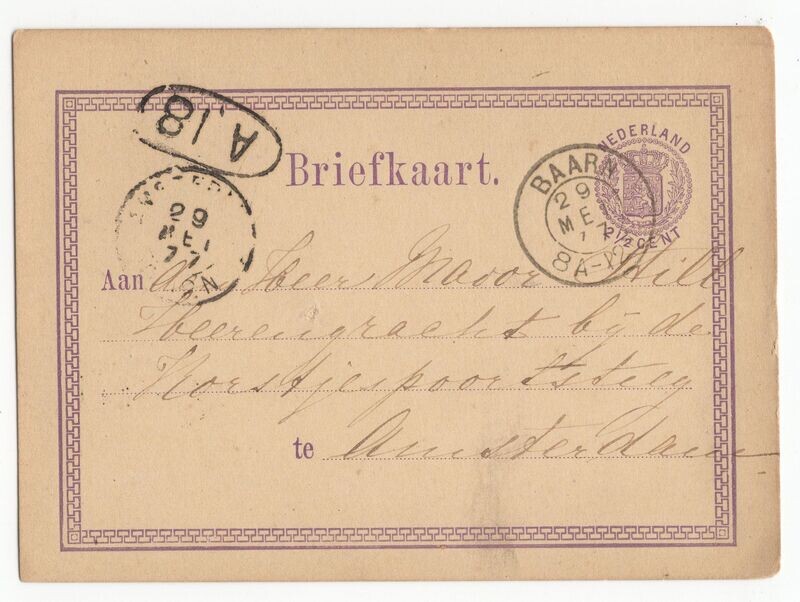 A 18
Briefkaart.
NEDERLAND
2½ CENT
BAARN
29
ME
8A-
29
MEI
77
Aan den Heer
Heerengracht bij de
Korstjespoortsteeg
te Amsterdam